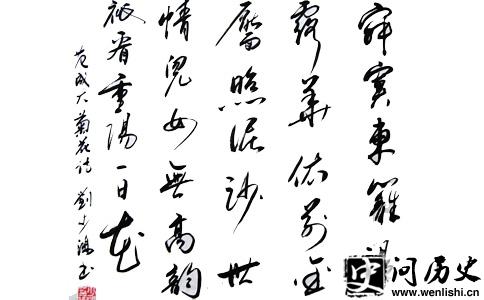 寂寞東籬
露華依前金
靨照泥沙世
情兒女無高韻
祇看重陽一日花
范成大菊花诗 劉少鴻书
史 问历史
www.wenlishi.com